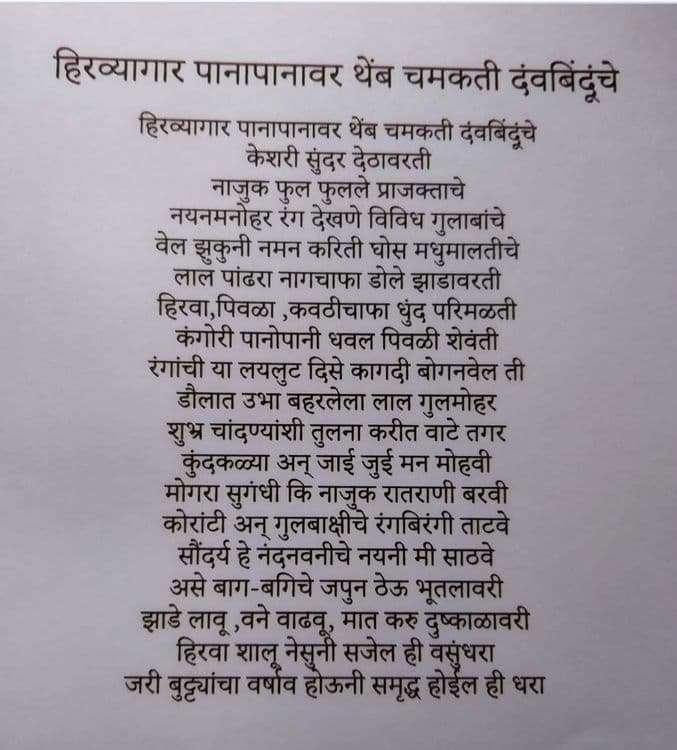 हिरव्यागार पानापानावर थेंब चमकती दंवबिंदूंचे
हिरव्यागार पानापानावर थेंब चमकती दंवबिंदूंचे
केशरी सुंदर देठावरती
नाजुक फुल फुलले प्राजक्ताचे
नयनमनोहर रंग देखणे विविध गुलाबांचे
वेल झुकुनी नमन करिती घोस मधुमालतीचे
लाल पांढरा नागचाफा डोले झाडावरती
हिरवा,पिवळा ,कवठीचाफा धुंद परिमळती
कंगोरी पानोपानी धवल पिवळी शेवंती
रंगांची या लयलुट दिसे कागदी बोगनवेल ती
डौलात उभा बहरलेला लाल गुलमोहर
शुभ्र चांदण्यांशी तुलना करीत वाटे तगर
कुंदकळ्या अन् जाई जुई मन मोहवी
मोगरा सुगंधी कि नाजुक रातराणी बरवी
कोरांटी अन् गुलबाक्षीचे रंगबिरंगी ताटवे
सौंदर्य हे नंदनवनीचे नयनी मी साठवे
असे बाग-बगिचे जपुन ठेऊ भूतलावरी
झाडे लावू ,वने वाढवू, मात करु दुष्काळावरी
हिरवा शालू नेसुनी सजेल ही वसुंधरा
जरी बुट्ट्यांचा वर्षाव होऊनी समृद्ध होईल ही धरा